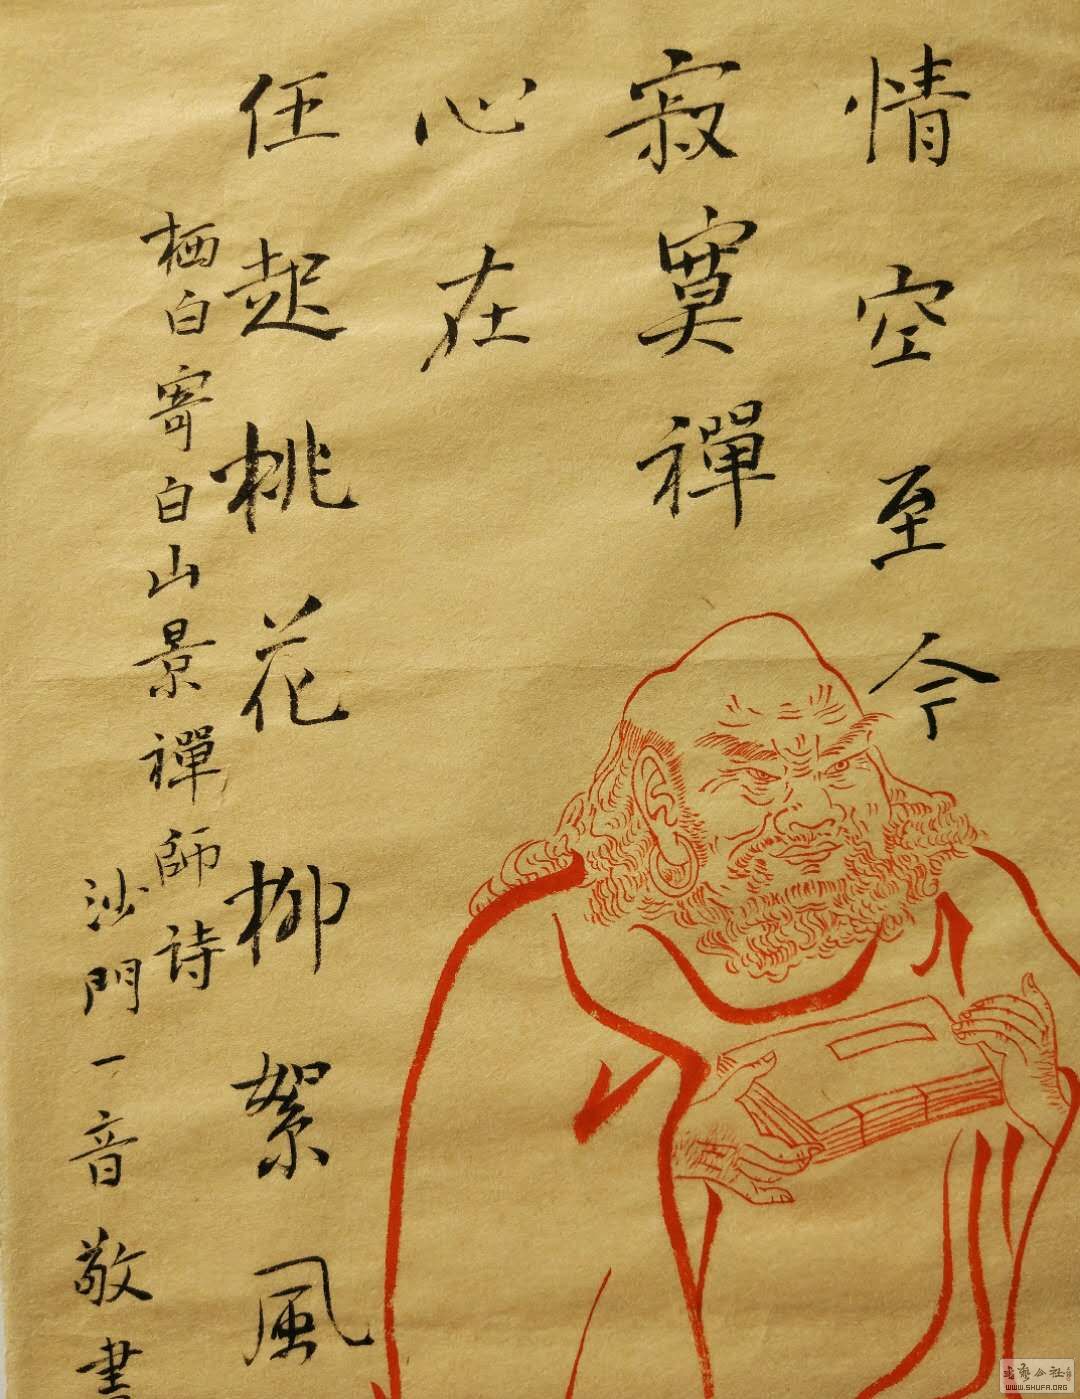 情空至今
寂寞禪
心在
任起桃花柳絮風
栖白寄白山景禪師诗
沙門一音敬書
WWW.SHUFA.ORG